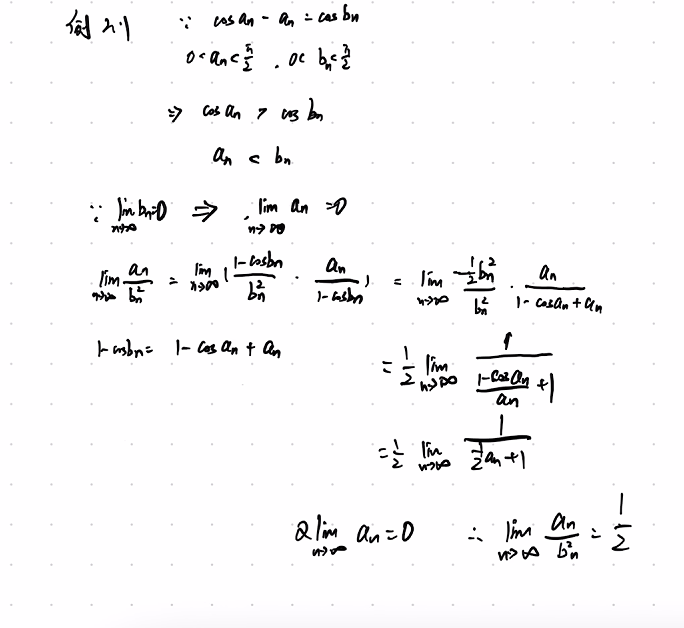 例2.1 ∵ cos aₙ - aₙ = cos bₙ
0 < aₙ < π/2 , 0 < bₙ < π/2
⇒ cos aₙ > cos bₙ
aₙ < bₙ
∵ lim_{n→∞} bₙ=0 ⇒ lim_{n→∞} aₙ =0
lim_{n→∞} aₙ/bₙ² = lim_{n→∞} ( (1-cos bₙ)/bₙ² · aₙ/(1-cos bₙ) ) = lim_{n→∞} (½bₙ²)/bₙ² · aₙ/(1-cos aₙ + aₙ)
1-cos bₙ = 1 - cos aₙ + aₙ
= 1/2 lim_{n→∞} 1/((1-cos aₙ)/aₙ + 1)
= 1/2 lim_{n→∞} 1/(½aₙ + 1)
又 lim_{n→∞} aₙ = 0 ∴ lim_{n→∞} aₙ/bₙ² = 1/2